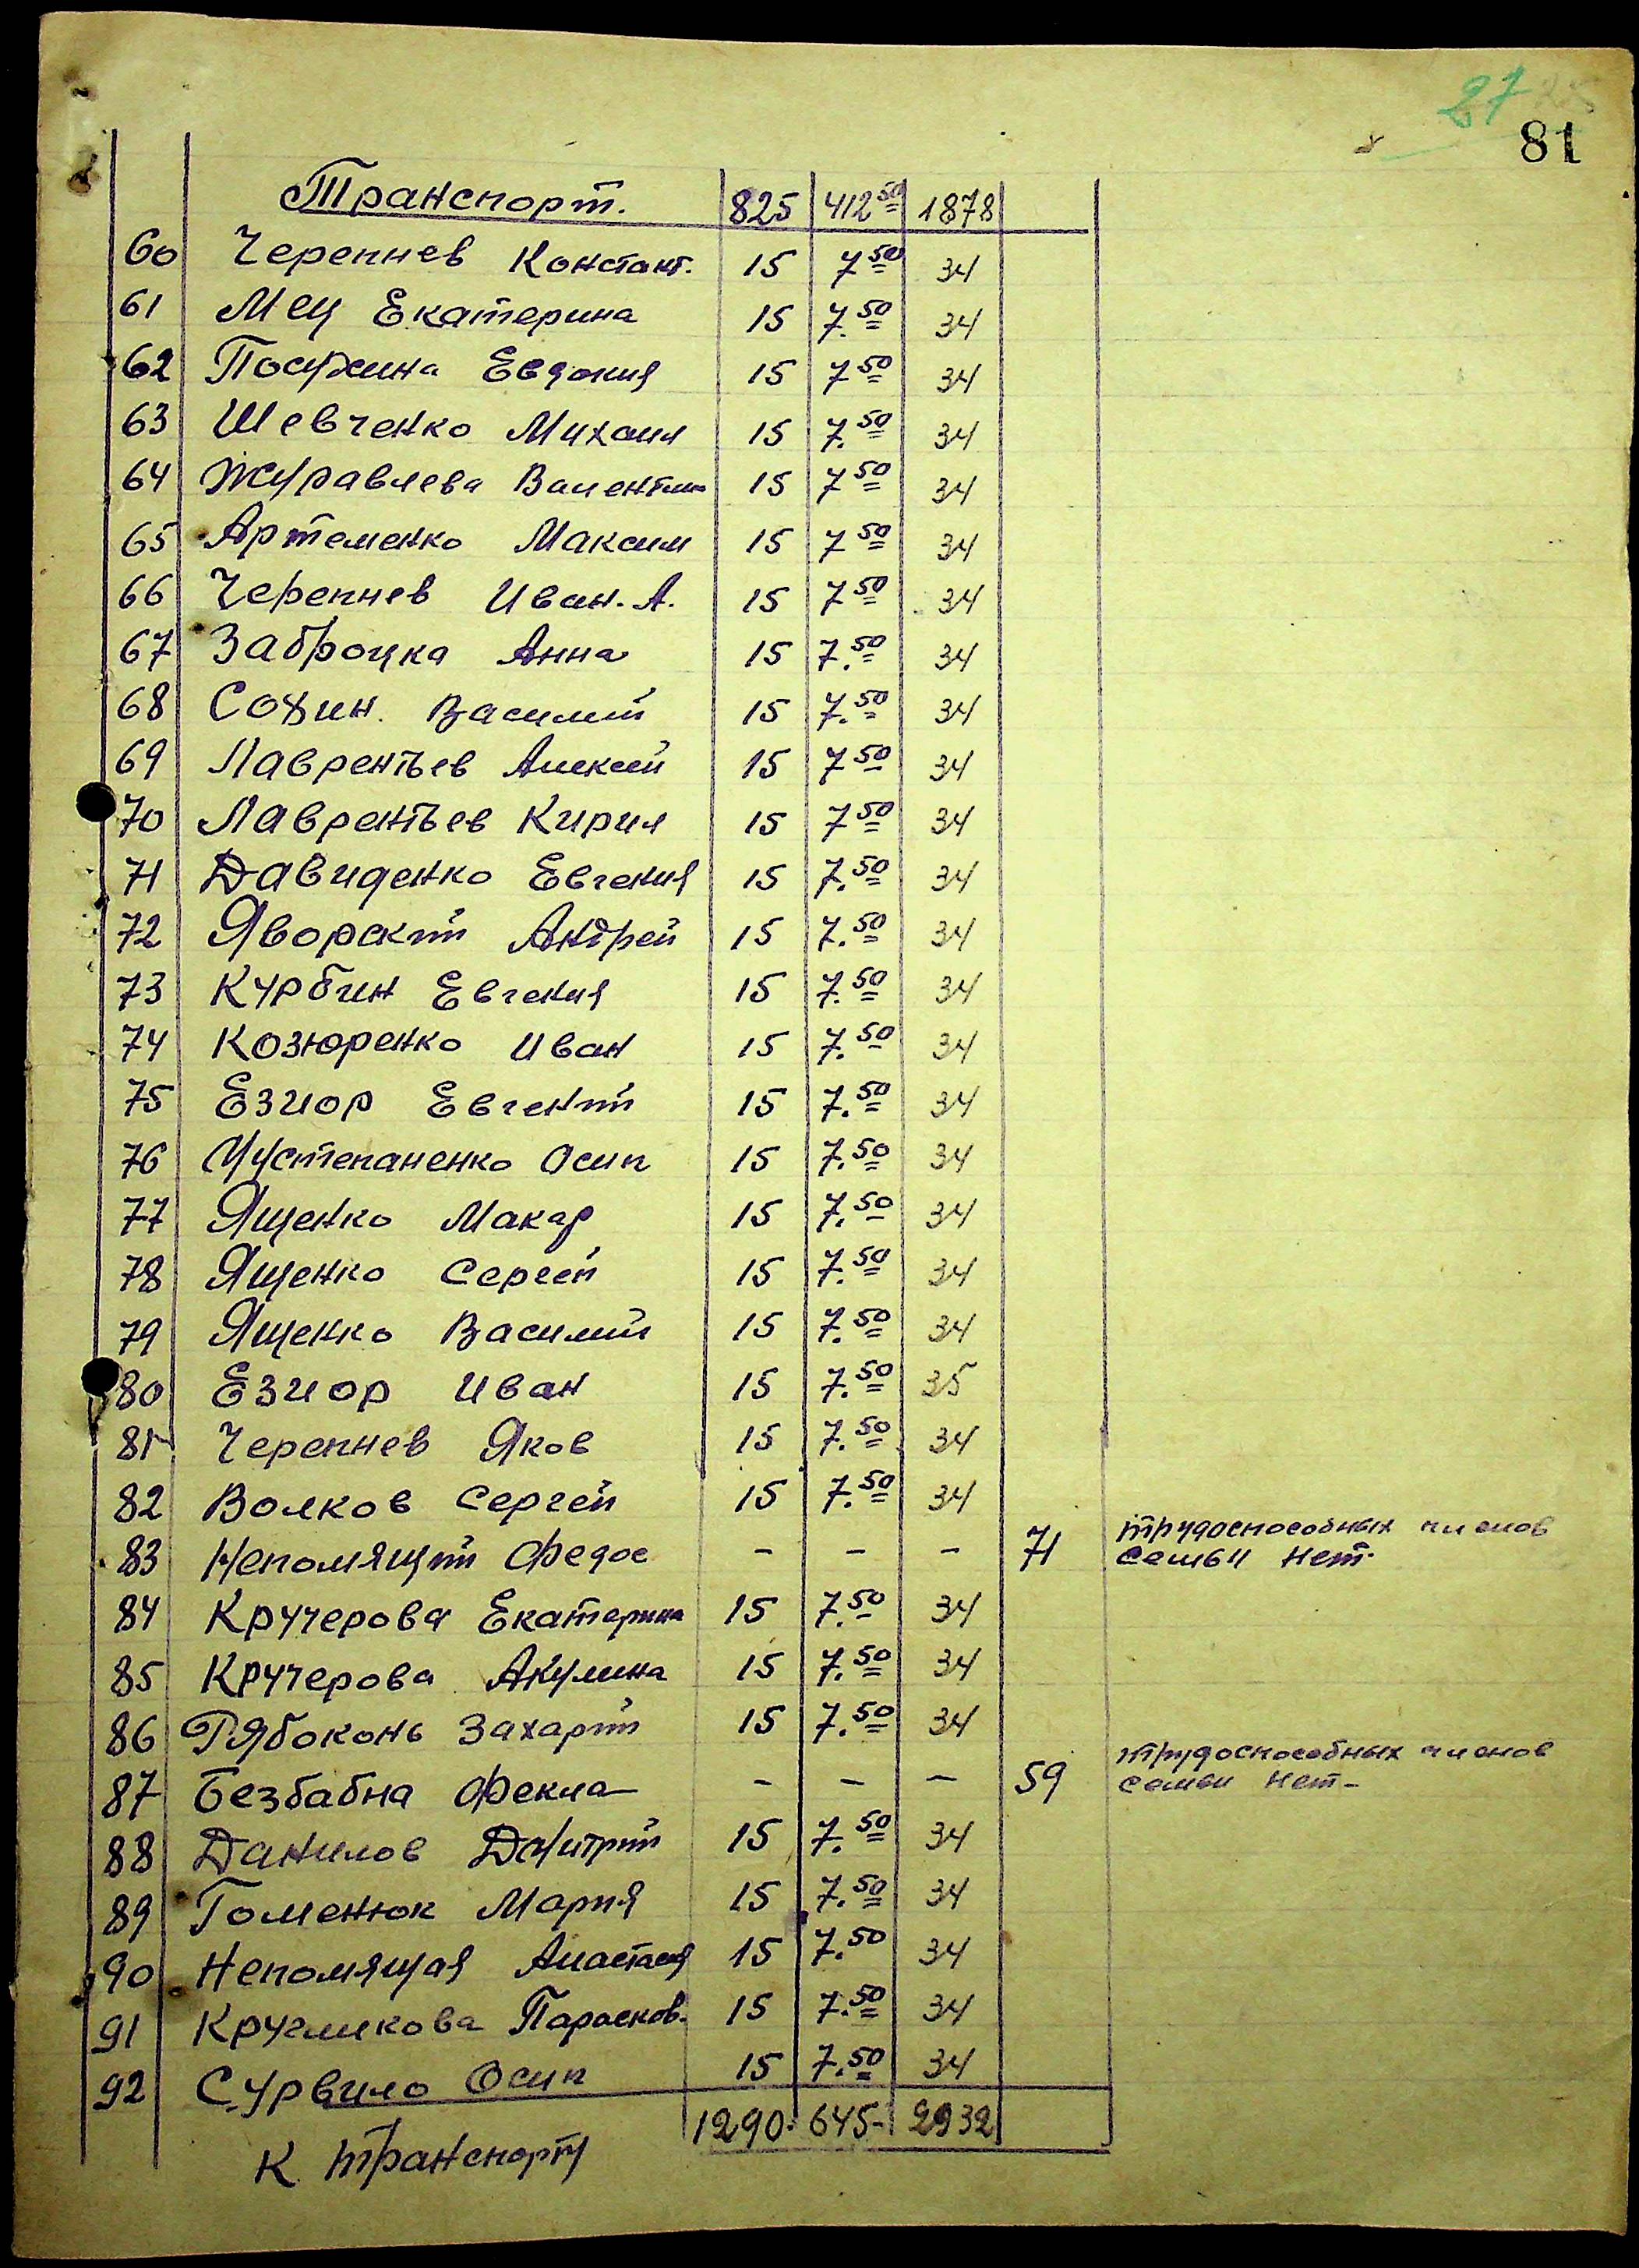 27
81
Транспорт. 825 412 50 1878
60 Черепнев Констант. 15 7 50 34
61 Мец Екатерина 15 7.50 34
62 Евдокия 15 7 50 34
63 Шевченко Михаил 15 7.50 34
64 Журавлева Валентин 15 7 50 34
65 Артеменко Максим 15 7 50 34
66 Черепнев Иван. А. 15 7 50 34
67 Заброцка Анна 15 7.50 34
68 Сохин. Василий 15 7.50 34
69 Лаврентьев Алексей 15 7 50 34
70 Лаврентьев Кирил 15 7 50 34
71 Давиденко Евгения 15 7.50 34
72 Яворский Андрей 15 7.50 34
73 Курбин Евгения 15 7.50 34
74 Козюренко Иван 15 7.50 34
75 Езиор Евгений 15 7.50 34
76 Осип 15 7.50 34
77 Ященко Макар 15 7.50 34
78 Ященко Сергей 15 7.50 34
79 Ященко Василий 15 7.50 34
80 Езиор Иван 15 7.50 35
81 Черепнев Яков 15 7.50 34
82 Волков Сергей 15 7.50 34
83 Непомящий Федос - - - 71 трудоспособных членов
семьи нет.
84 Кручерова Екатерина 15 7.50 34
85 Кручерова Акулина 15 7.50 34
86 Рябоконь Захарий 15 7.50 34
87 Безбабна Фекла - - - 59 трудоспособных членов
семьи нет-
88 Данилов Дмитрий 15 7.50 34
89 Гоменюк Мария 15 7.50 34
90 Непомящая Анастасия 15 7.50 34
91 Кругликова Парасков. 15 7.50 34
92 Сурвило Осип 15 7.50 34
К транспорту 1290. 645- 2932